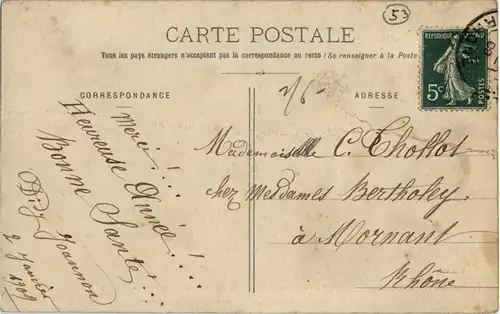 53
CARTE POSTALE
Tous les pays étrangers n'acceptent pas la correspondance au recto (Se renseigner à la Poste
CORRESPONDANCE
Merci!...
Heureuse Année!...
Bonne Santé!...
Joannon
2 Janvier
1909
ADRESSE
Mademoiselle C. Thollot
chez Mesdames Bertholey
à Mornant
Rhône
REPUBLIQUE
5c
POSTES